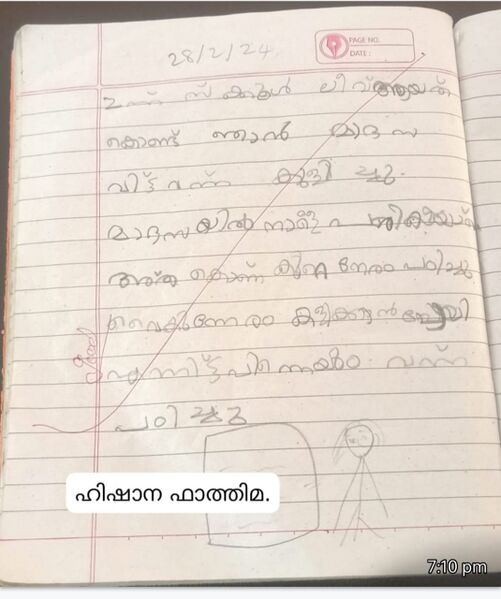 28/2/24
PAGE NO.
DATE :
ഇന്ന് സ്ക്കൂൾ ലീവ് ആയത്
കൊണ്ട് ഞാൻ മദ്രസ
വിട്ട് വന്ന് കുളിച്ചു.
മദ്രസയിൽ നാളെ പരീക്ഷയാണ്
അത് കൊണ്ട് കുറെ നേരം പഠിച്ചു
വൈകുന്നേരം കളിക്കാൻ പോയി
എന്നിട്ട് പിന്നെയും വന്ന്
പഠിച്ചു
ഹിഷാന ഫാത്തിമ.
7:10 pm